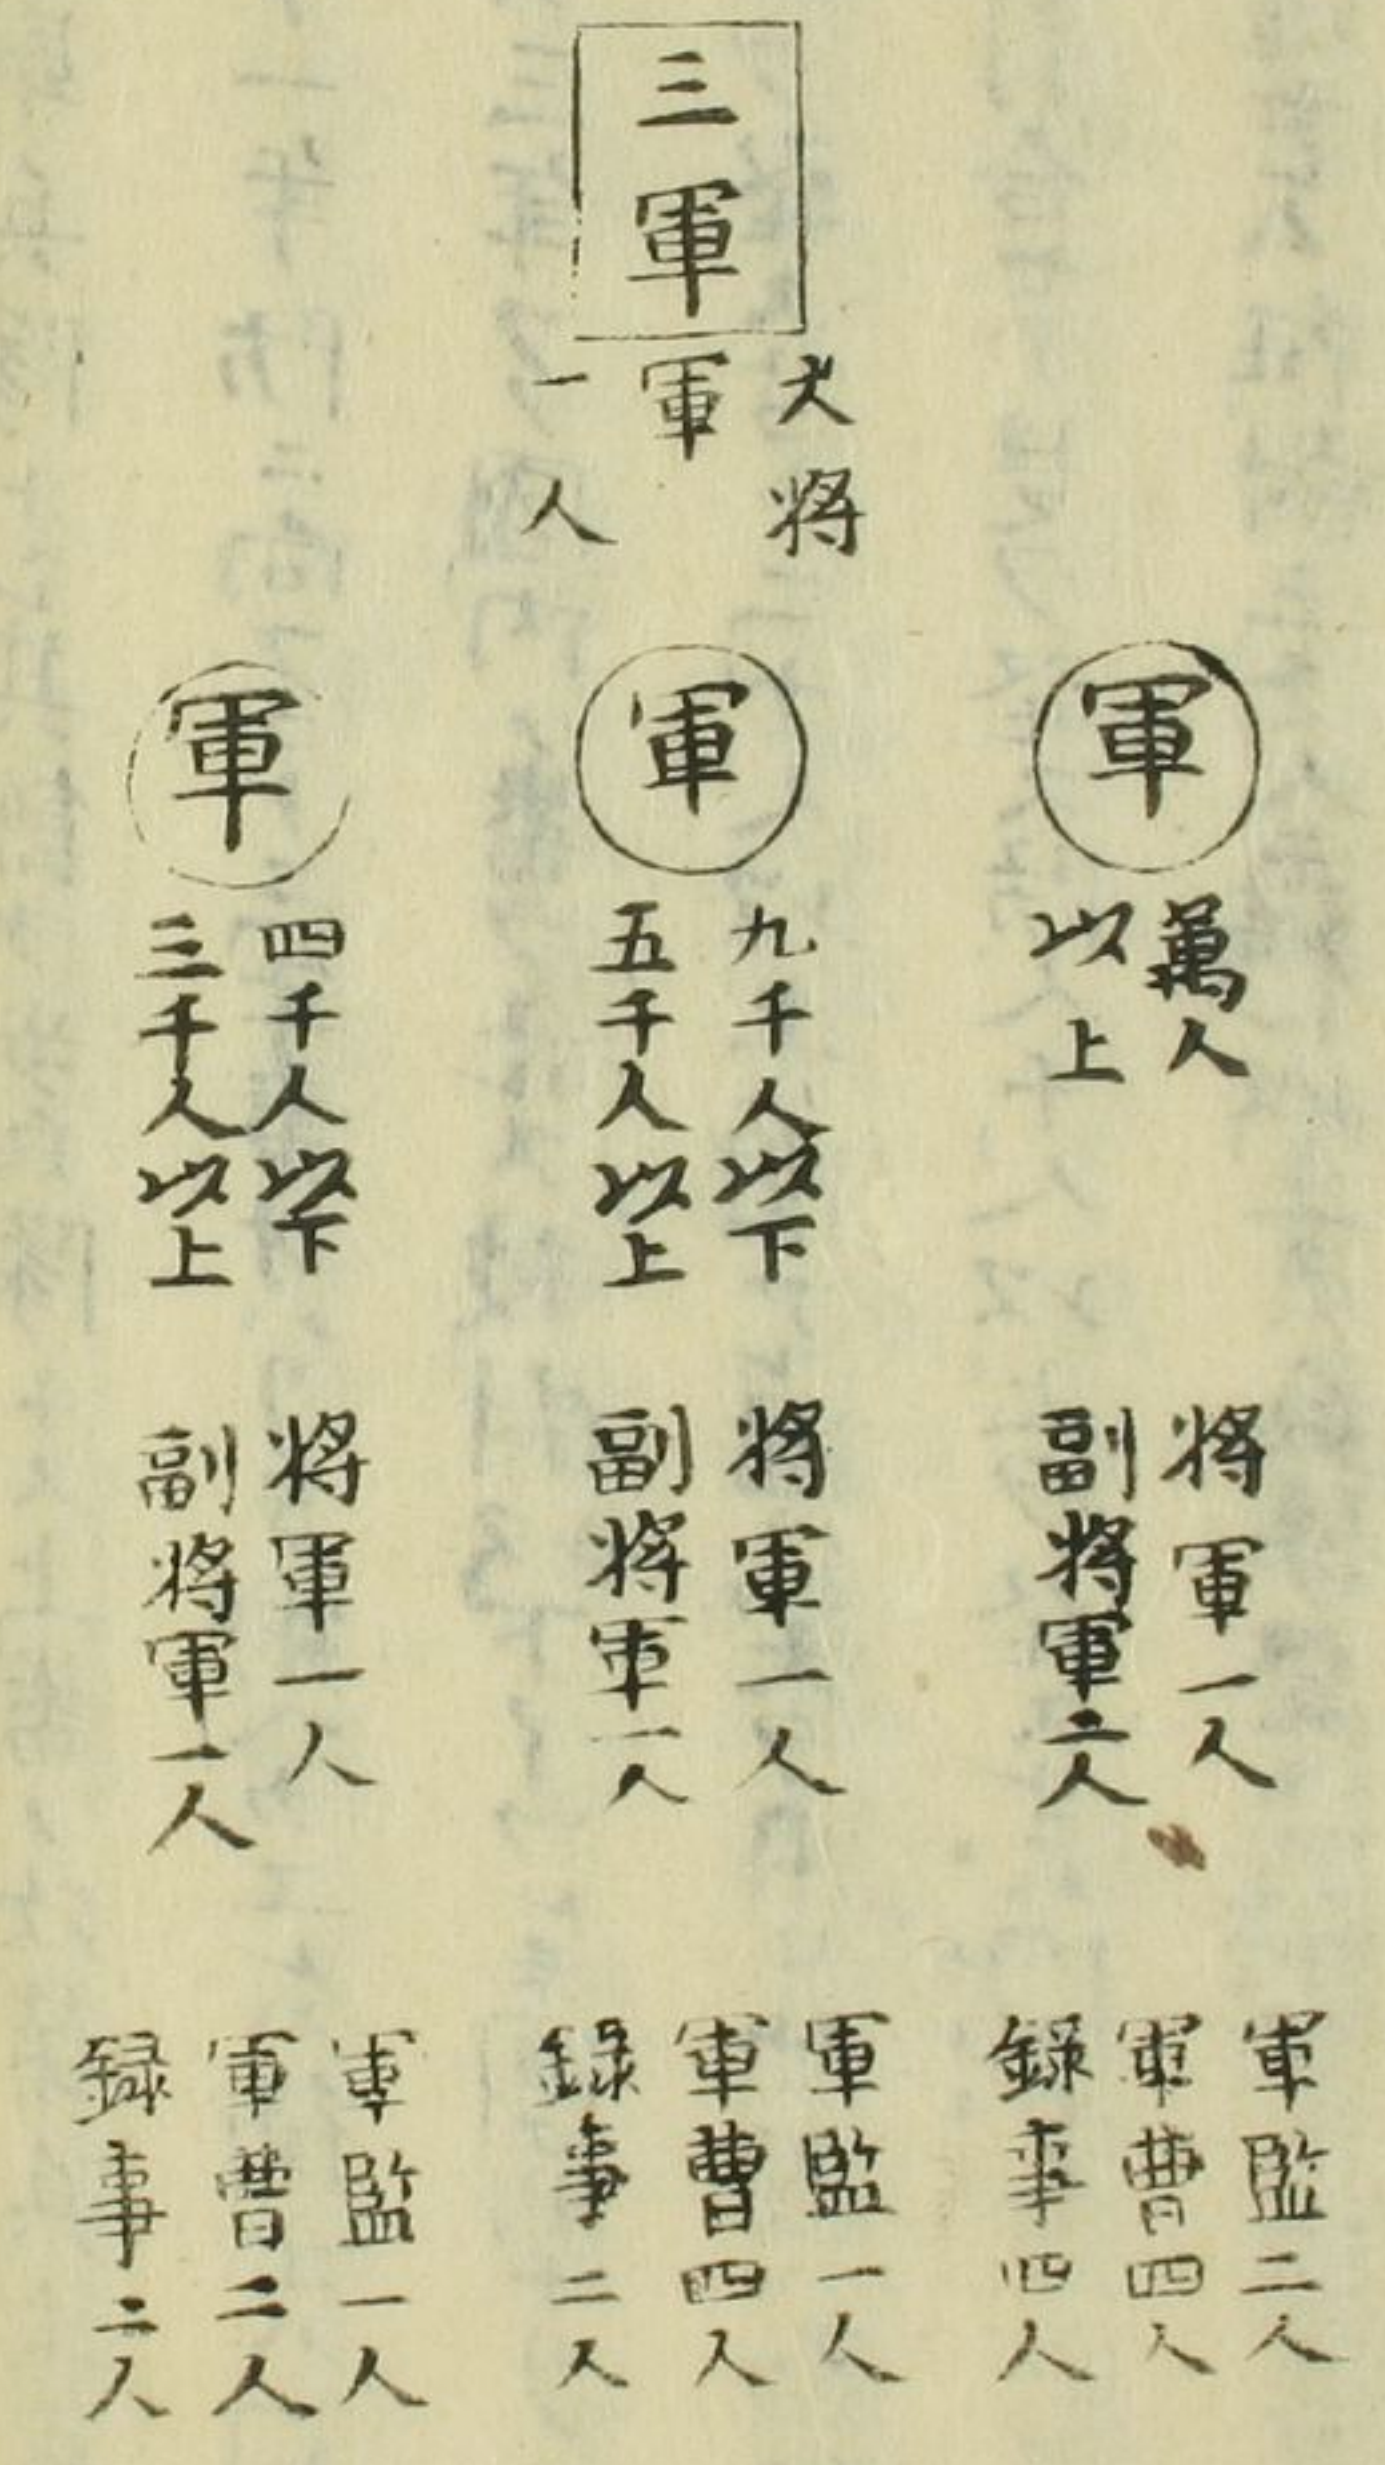 三軍
大将
軍
一人
軍
萬人
以上
将軍一人
副将軍二人
軍監二人
軍曹四人
録事四人
軍
九千人以下
五千人以上
将軍一人
副将軍一人
軍監一人
軍曹四人
録事二人
軍
四千人以下
三千人以上
将軍一人
副将軍一人
軍監一人
軍曹二人
録事二人